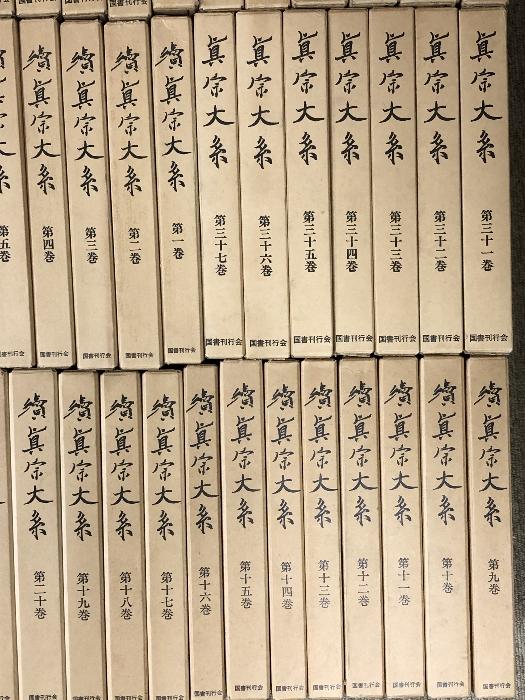 眞宗大系 第三十一巻 国書刊行会
眞宗大系 第三十二巻 国書刊行会
眞宗大系 第三十三巻 国書刊行会
眞宗大系 第三十四巻 国書刊行会
眞宗大系 第三十五巻 国書刊行会
眞宗大系 第三十六巻 国書刊行会
眞宗大系 第三十七巻 国書刊行会
續眞宗大系 第一巻 国書刊行会
續眞宗大系 第二巻 国書刊行会
續眞宗大系 第三巻 国書刊行会
續眞宗大系 第四巻 国書刊行会
第五巻
續眞宗大系 第九巻 国書刊行会
續眞宗大系 第十巻 国書刊行会
續眞宗大系 第十一巻 国書刊行会
續眞宗大系 第十二巻 国書刊行会
續眞宗大系 第十三巻 国書刊行会
續眞宗大系 第十四巻 国書刊行会
續眞宗大系 第十五巻 国書刊行会
續眞宗大系 第十六巻 国書刊行会
續眞宗大系 第十七巻 国書刊行会
續眞宗大系 第十八巻 国書刊行会
續眞宗大系 第十九巻 国書刊行会
續眞宗大系 第二十巻 国書刊行会